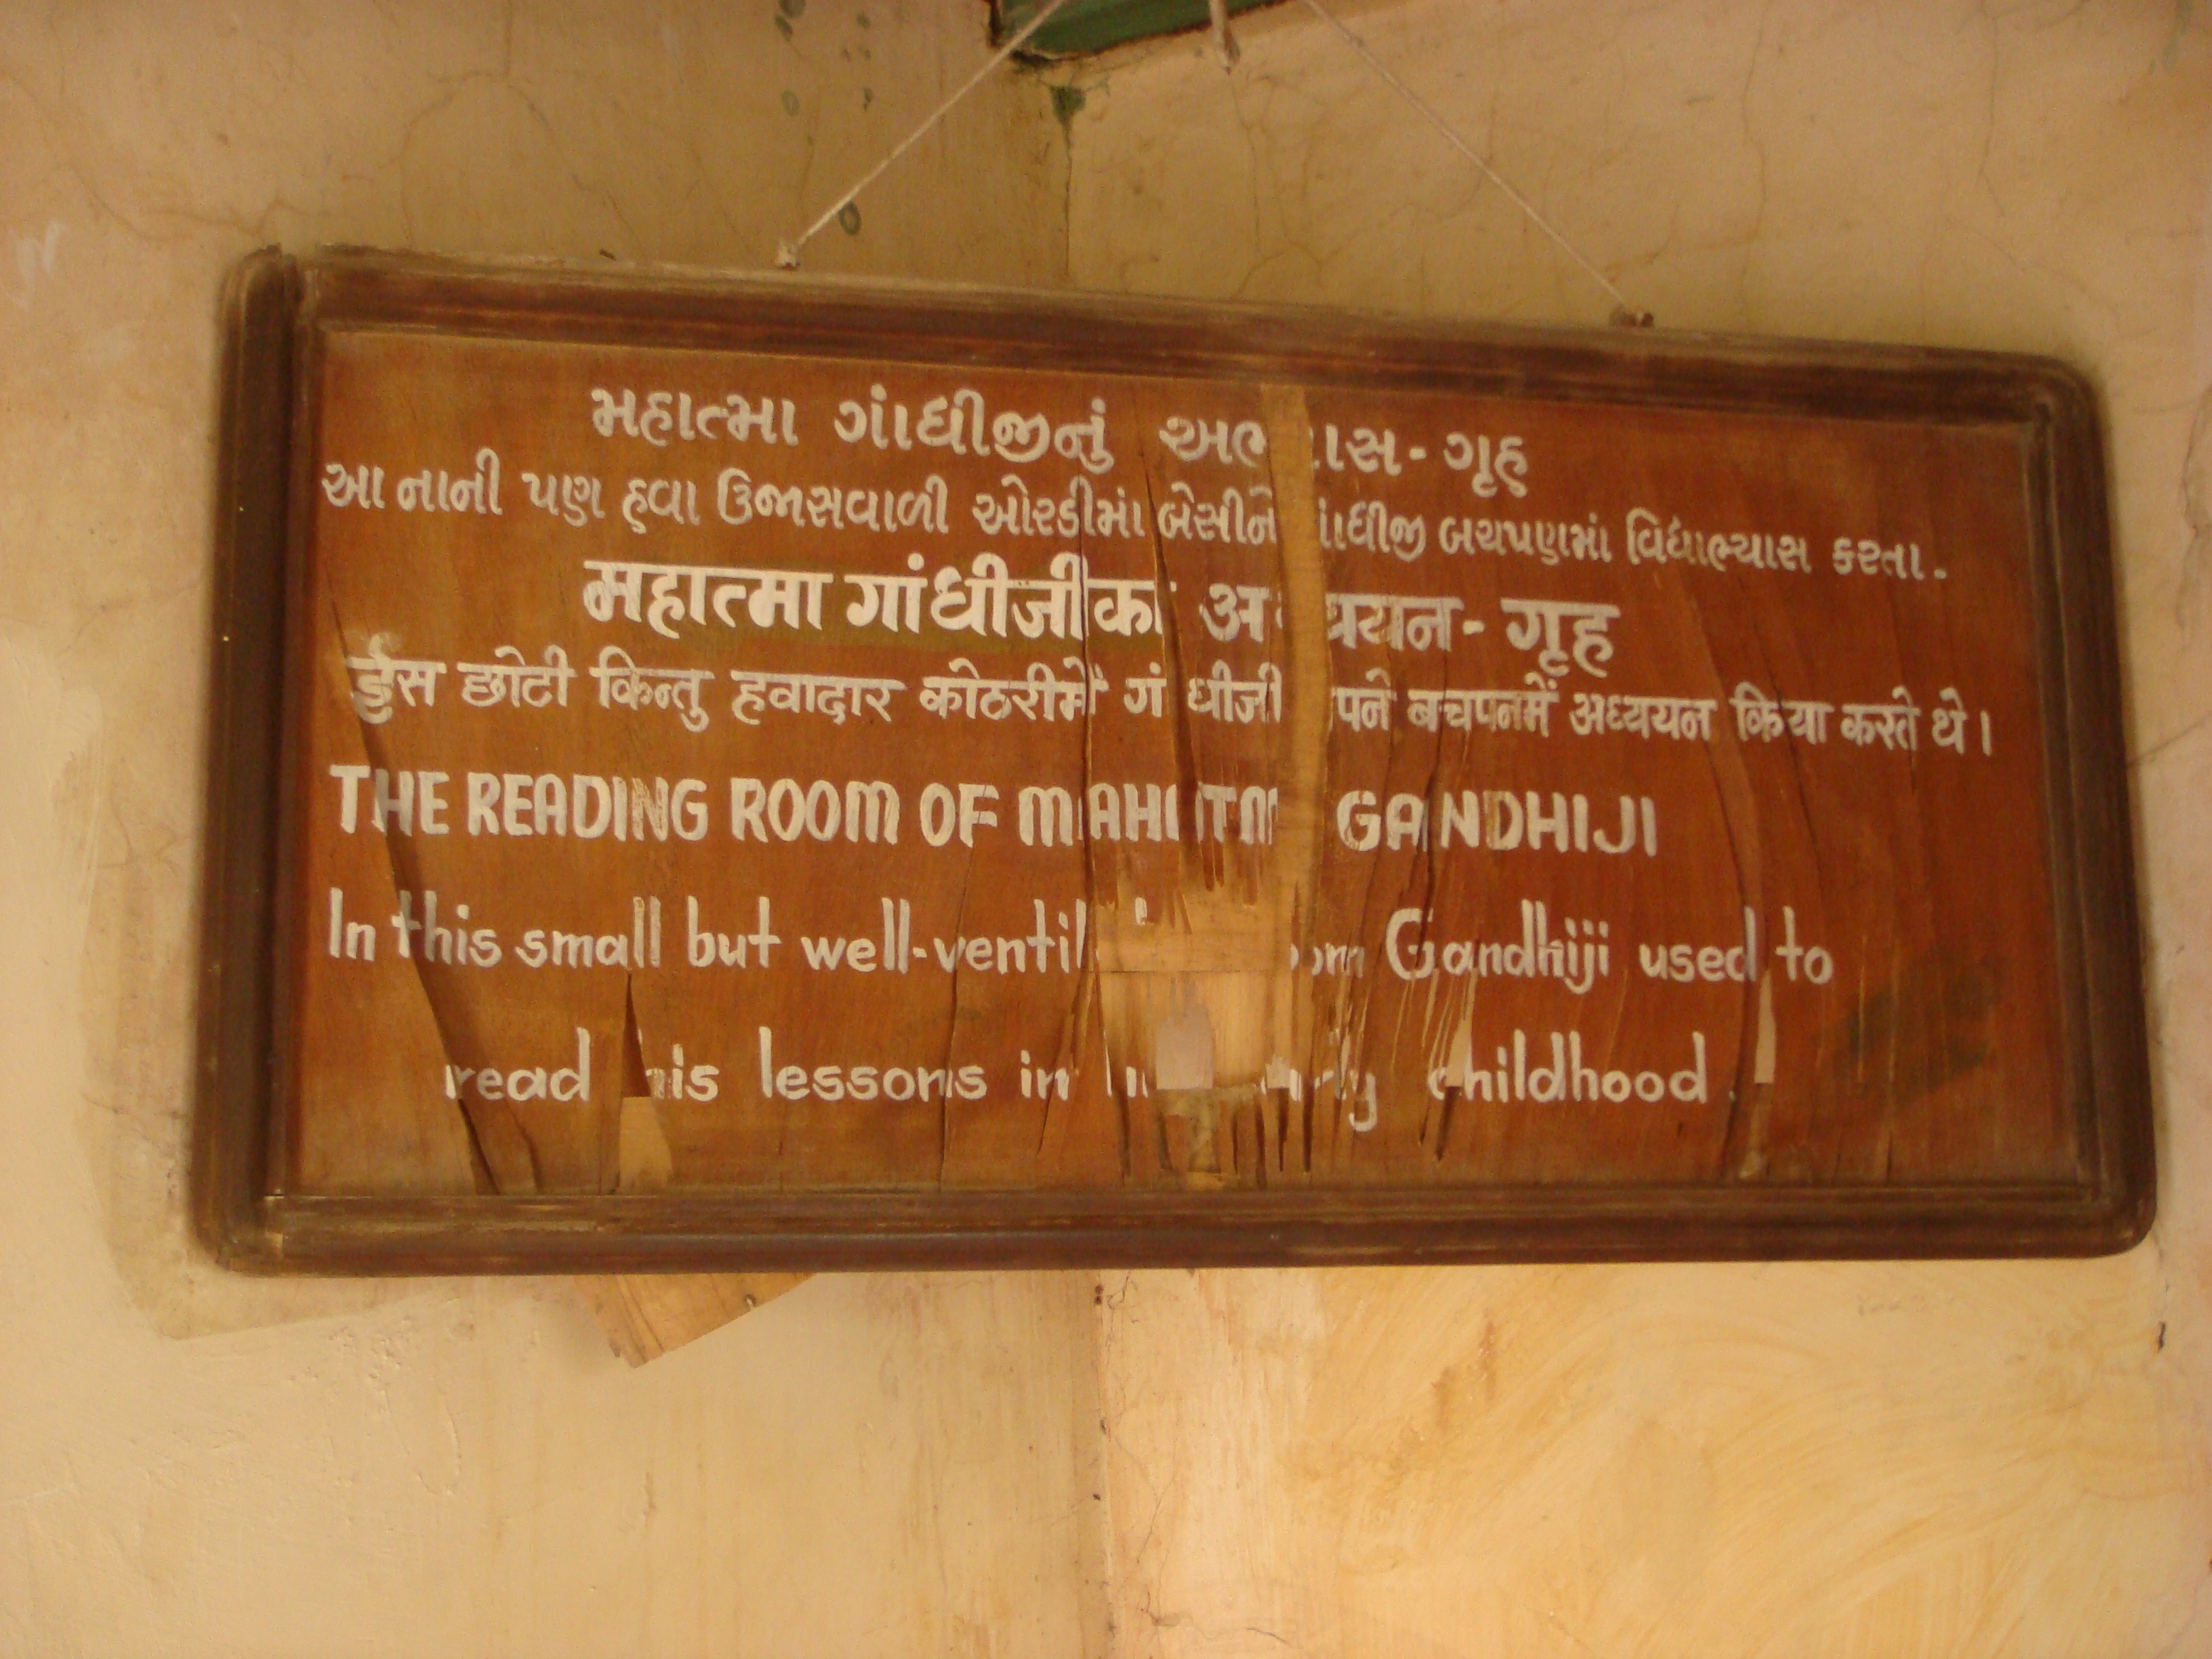 મહાત્મા ગાંધીજીનું - ગૃહ
આ નાની પણ હવા ઉજાસવાળી ઓરડીમાં બેસીને બચપણમાં વિદ્યાભ્યાસ કરતા.
महात्मा गांधीजीका - गृह
ईस छोटी किन्तु हवादार कोठरीमें बचपनमें अध्ययन किया करते थे।
THE READING ROOM OF GANDHIJI
In this small but Gandhiji used to
read lessons in childhood.